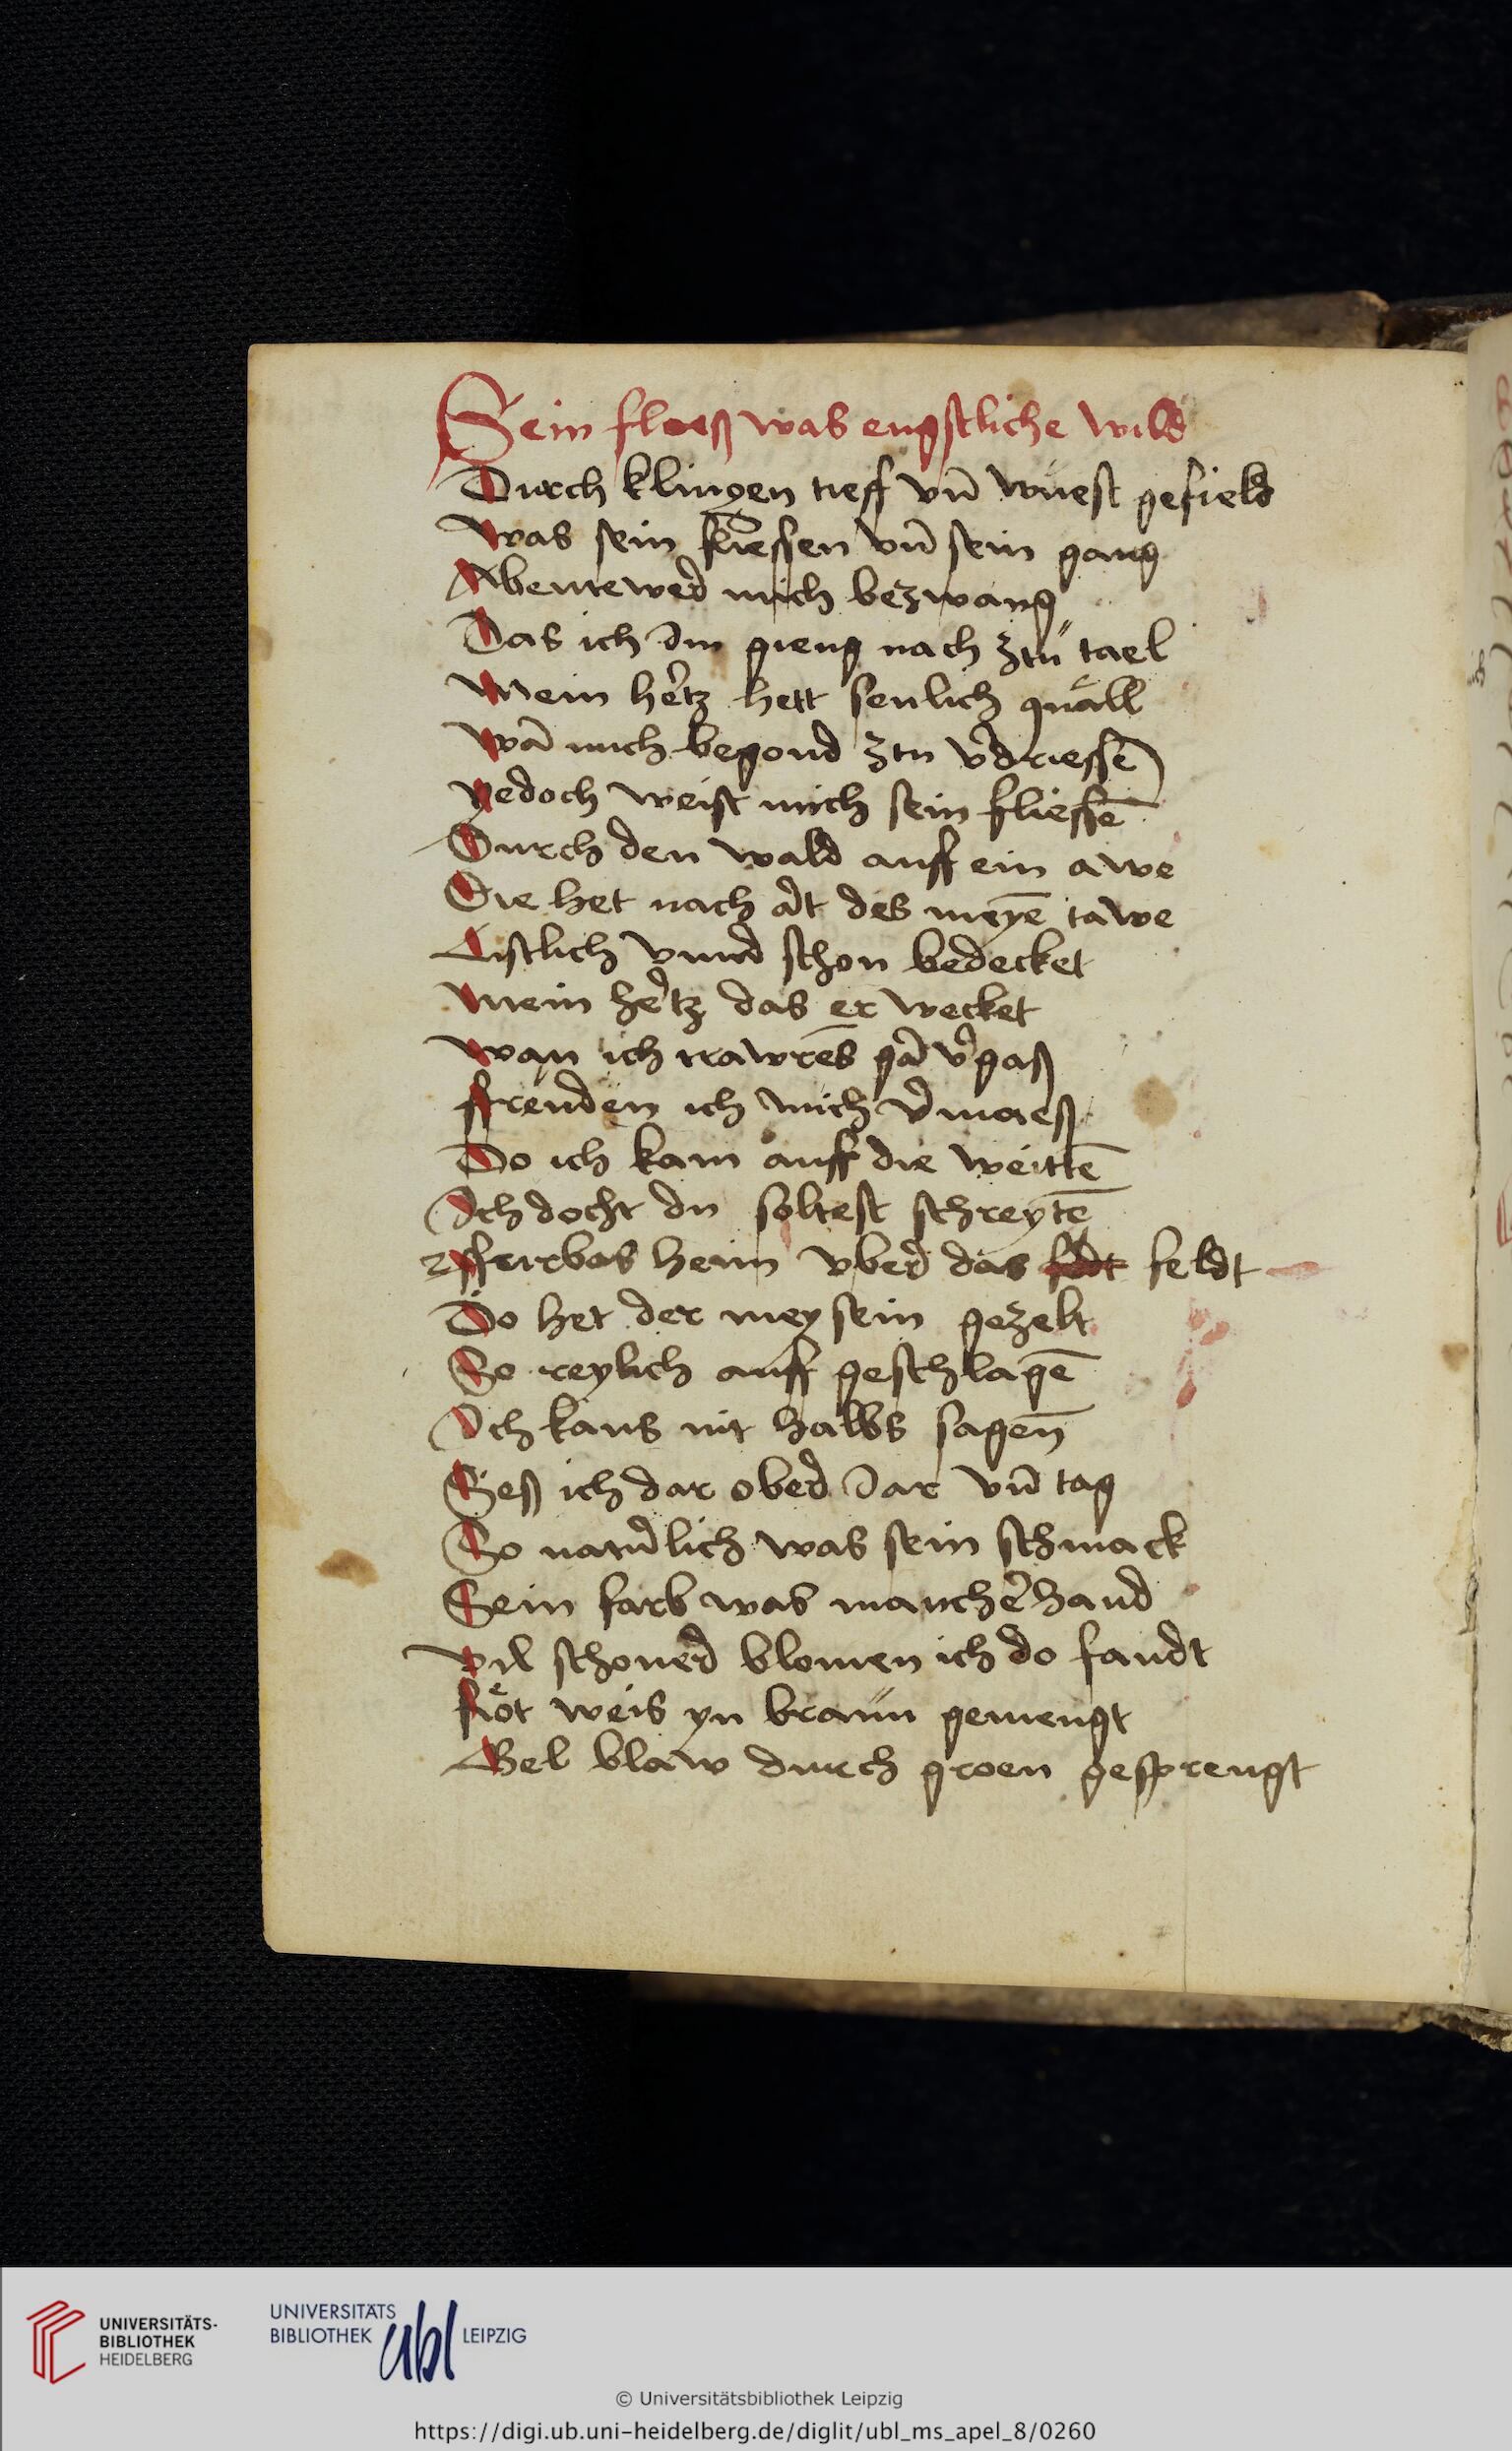 Sein floeß was engstliche wild
Durch klingen tieff vn̄ wuest gefield
Was sein kiessen vn̄ sein gang
Abentewer̉ mich bezwang
Das ich Im gieng nach ztu tael
Mein her̉tz hett senlich quäll
Wan̄ mich begond ztu v̉driessē
yedoch weist mich sein fliessē
Durch den wald auff ein awe
Die het nach ar̉t des meyē tawe
Listlich vnnd schon bedecket
Mein her̉tz das er wecket
Wan ich trawrēs gar̉ v̉gaß
ffreuden ich mich v̉maeß
Do ich kam auff die weittē
Ich docht du soltest schreytē
ffurbas hein vber̉ das feldt
Do het der mey sein gezelt
So reylich auff geschlagē
Ich kans nit halbs sagen̄
Seß ich dar ober̉ Jar vn̄ tag
So natur̉lich was sein schmack
Sein farb was mancher̉hand
vil schoner̉ blomen ich do fandt
Röt weis yn braun gemengt
Gel blaw durch groen gesprengt
UNIVERSITÄTS-
BIBLIOTHEK
HEIDELBERG
UNIVERSITÄTS
BIBLIOTHEK ubl LEIPZIG
© Universitätsbibliothek Leipzig
https://digi.ub.uni-heidelberg.de/diglit/ubl_ms_apel_8/0260